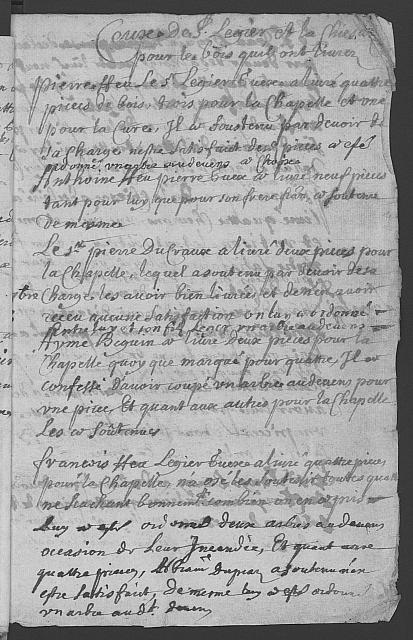 Ceux de St. Legier Et la Chiesa
pour les bois quil ont livrez
Pierre ffeu le Sr Legier Cuex a livré quattre
pieces de bois, trois pour la Chapelle et une
pour la Cure, Il a soustenu par devoir de
sa Charge nestre satisfait des pieces a esté
ordonné un arbre au devens a Choix
Anthoine ffeu pierre Cuex a livré neuf pieces
tant pour luy que pour son frere a soutenu
de mesme
Le Sr. pierre DuCraux a livré deux pieces pour
la Chapelle, lequel a soutenu par devoir de sa
Charge les avoir bien livrées et den avoir
receu aucune satisfaction on luy a ordonné
entre luy et son fils Leger un arbre au devens
Ayme Beguin a livré deux pieces pour la
Chapelle quoy que marqué pour quattre, Il a
confessé davoir coupé un arbre au devens pour
une piece, Et quant aux autres pour la Chapelle
Les a soutenues
francois ffeu Legier Cuex a livré quattre pieces
pour la Chapelle na osé les soutenir toutes quattre
ne sachant bonnement combien
Luy a esté ordonné deux arbres au devens
occasion de leur Incendie, Et quant aux
quattre pieces, a soutenu nen
estre satisfait, de mesme luy a esté ordonné
un arbre audt. devens